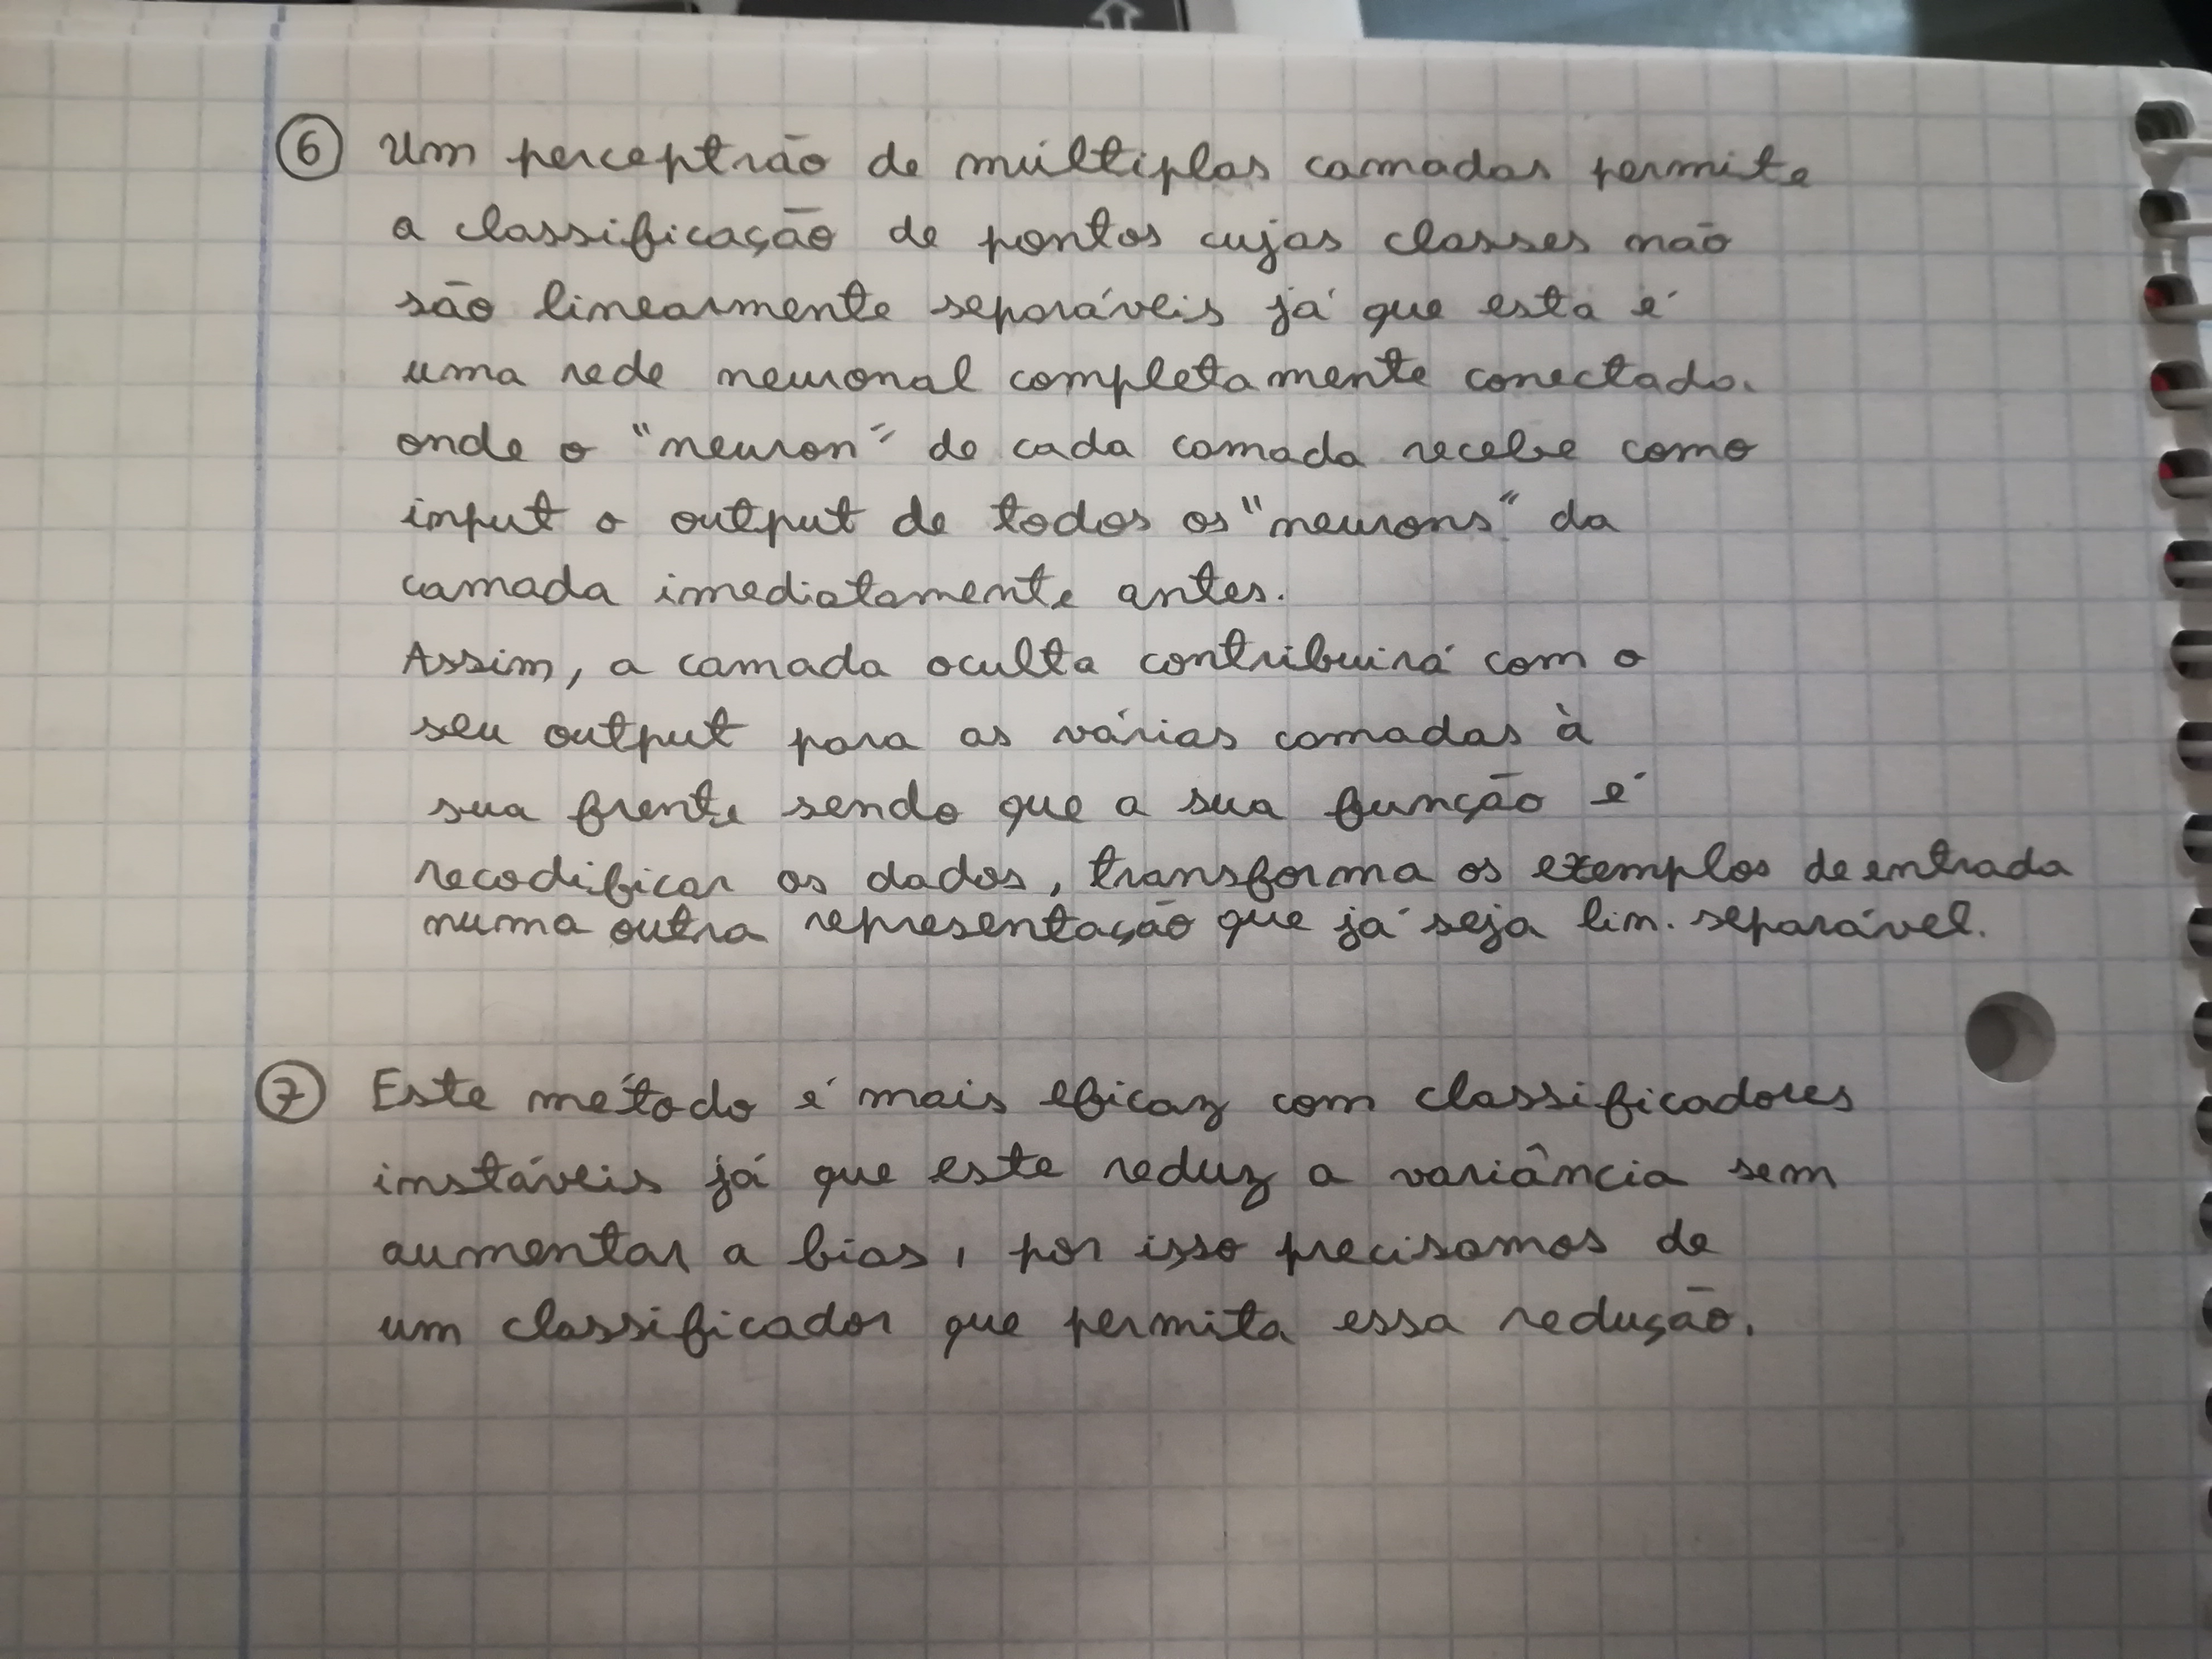 6 Um perceptrão de múltiplas camadas permite
a classificação de pontos cujas classes não
são linearmente separáveis já que esta é
uma rede neuronal completamente conectada.
onde o "neuron" de cada camada recebe como
input o output de todos os "neurons" da
camada imediatamente antes.
Assim, a camada oculta contribuirá com o
seu output para as várias camadas à
sua frente sendo que a sua função é
recodificar os dados, transforma os exemplos de entrada
numa outra representação que já seja lin. separável.
7 Este método é mais eficaz com classificadores
instáveis já que este reduz a variância sem
aumentar a bias, por isso precisamos de
um classificador que permita essa redução.